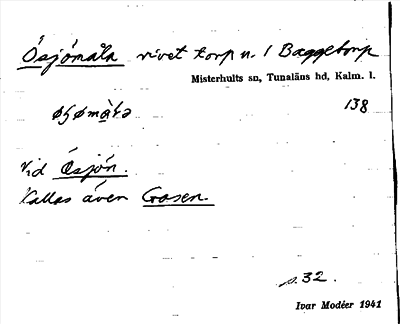 Ösjömåla rivet torp u. / Baggetorp
Misterhults sn, Tunaläns hd, Kalm. l.
138
Vid Ösjön.
Kallas även Gosen.
s. 32.
Ivar Modéer 1941